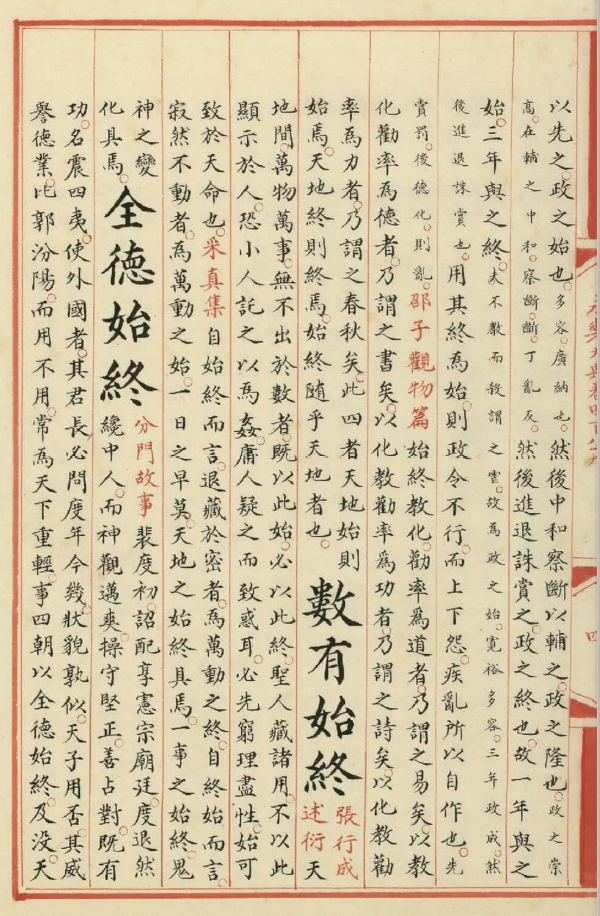 以先之。政之始也。多容廣納也。然後中和察斷以輔之。政之隆也。政之崇
高。在輔之中和察斷。斷丁亂反。然後進退誅賞之。政之終也。故一年與之
始。三年與之終。夫不教而殺謂之虐。故為政之始。寬裕多容。三年政成。然
後進退誅賞也。用其終為始。則政令不行。而上下怨疾。亂所以自作也。先
賞罰。後德化。則亂。邵子觀物篇始終教化。勸率爲道者。乃謂之易矣。以教
化勸率為德者。乃謂之書矣。以化教勸率爲功者。乃謂之詩矣。以化教勸
率為力者。乃謂之春秋矣。此四者天地始則
始焉。天地終則終焉。始終隨乎天地者也。
數有始終
張行成
述衍天
地間。萬物萬事。無不出於數者。既以此始。必以此終。聖人藏諸用。不以此
顯示於人。恐小人託之以爲姦。庸人疑之而致惑耳。必先窮理盡性。始可
致於天命也。采真集自始終而言。退藏於密者。為萬動之終。自終始而言。
寂然不動者。為萬動之始。一日之早莫。天地之始終具焉。一事之始終。鬼
神之變
化具焉。
全德始終
分門故事裴度初。詔配享憲宗廟廷。度退然
纔中人。而神觀邁爽。操守堅正。善占對。既有
功。名震四夷。使外國者。其君長必問度年今幾。狀貌孰似。天子用否。其威
譽德業。比郭汾陽。而用不用。常為天下重輕。事四朝。以全德始終。及没。天